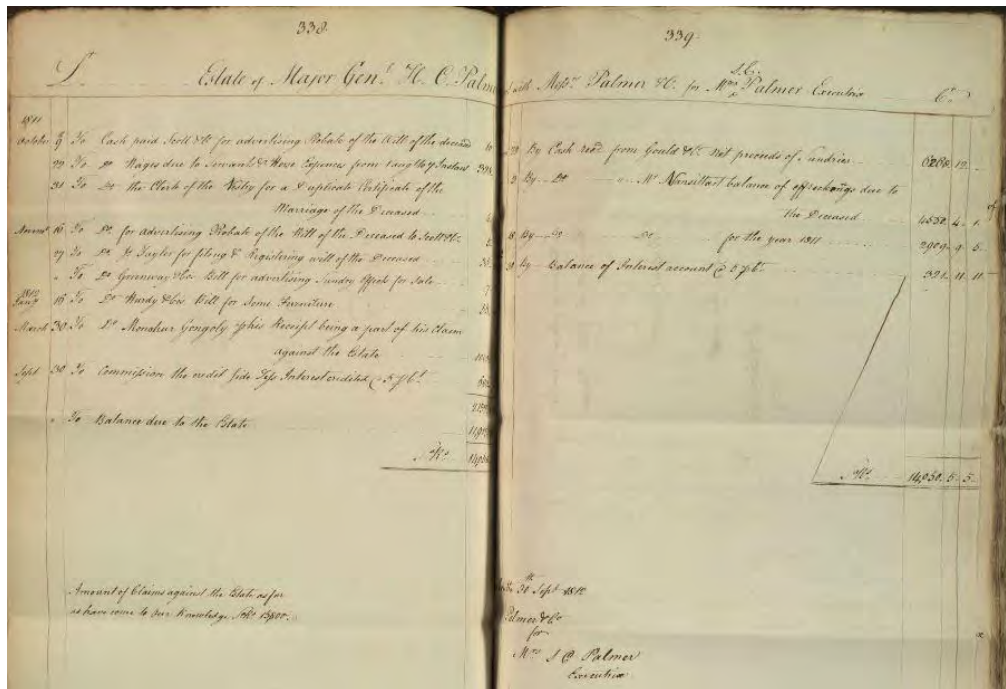 338
Dr. Estate of Major Genl. H. C. Palm
1811
October 9 To Cash paid Scott & Co for advertising Probate of the Will of the deceased
22 To Do Wages due to Servants & House Expences from
31 To Do the Clerk of the Vestry for a Duplicate Certificate of the
Marriage of the Deceased
16 To Do. for advertising Probate of the Will of the Deceased to Scott & Co.
27 To Do J. Taylor for filing & Registering will of the Deceased
" To Do Greenway & Cos. Bill for advertising Sundry Effects for Sale
1812
16 To Do Hardy & Cos. Bill for Some Furniture
March 30 To Do Monohur Gongoly his Receipt being a part of his Claim
against the Estate
Sept 30 To Commission the credit side less Interest credited @ 5 p Ct.
" To Balance due to the Estate
Amount of Claims against the Estate as far
as have come to our knowledge
339
with Messrs. Palmer & Co. for Mrs. S. C. Palmer Executrix Cr.
By Cash recd. from Gould & Co. Net proceeds of Sundries 12
By Do " Mr. Vansittart balance of due to
the Deceased 4550. 4. 1.
By Do Do for the year 1811 2909. 9. 5
By Balance of Interest account @ 5 p Ct. 321. 11. 11
14,050. 5. 5.
30th Sept. 1812
Palmer & Co
for
Mrs S C Palmer
Executrix